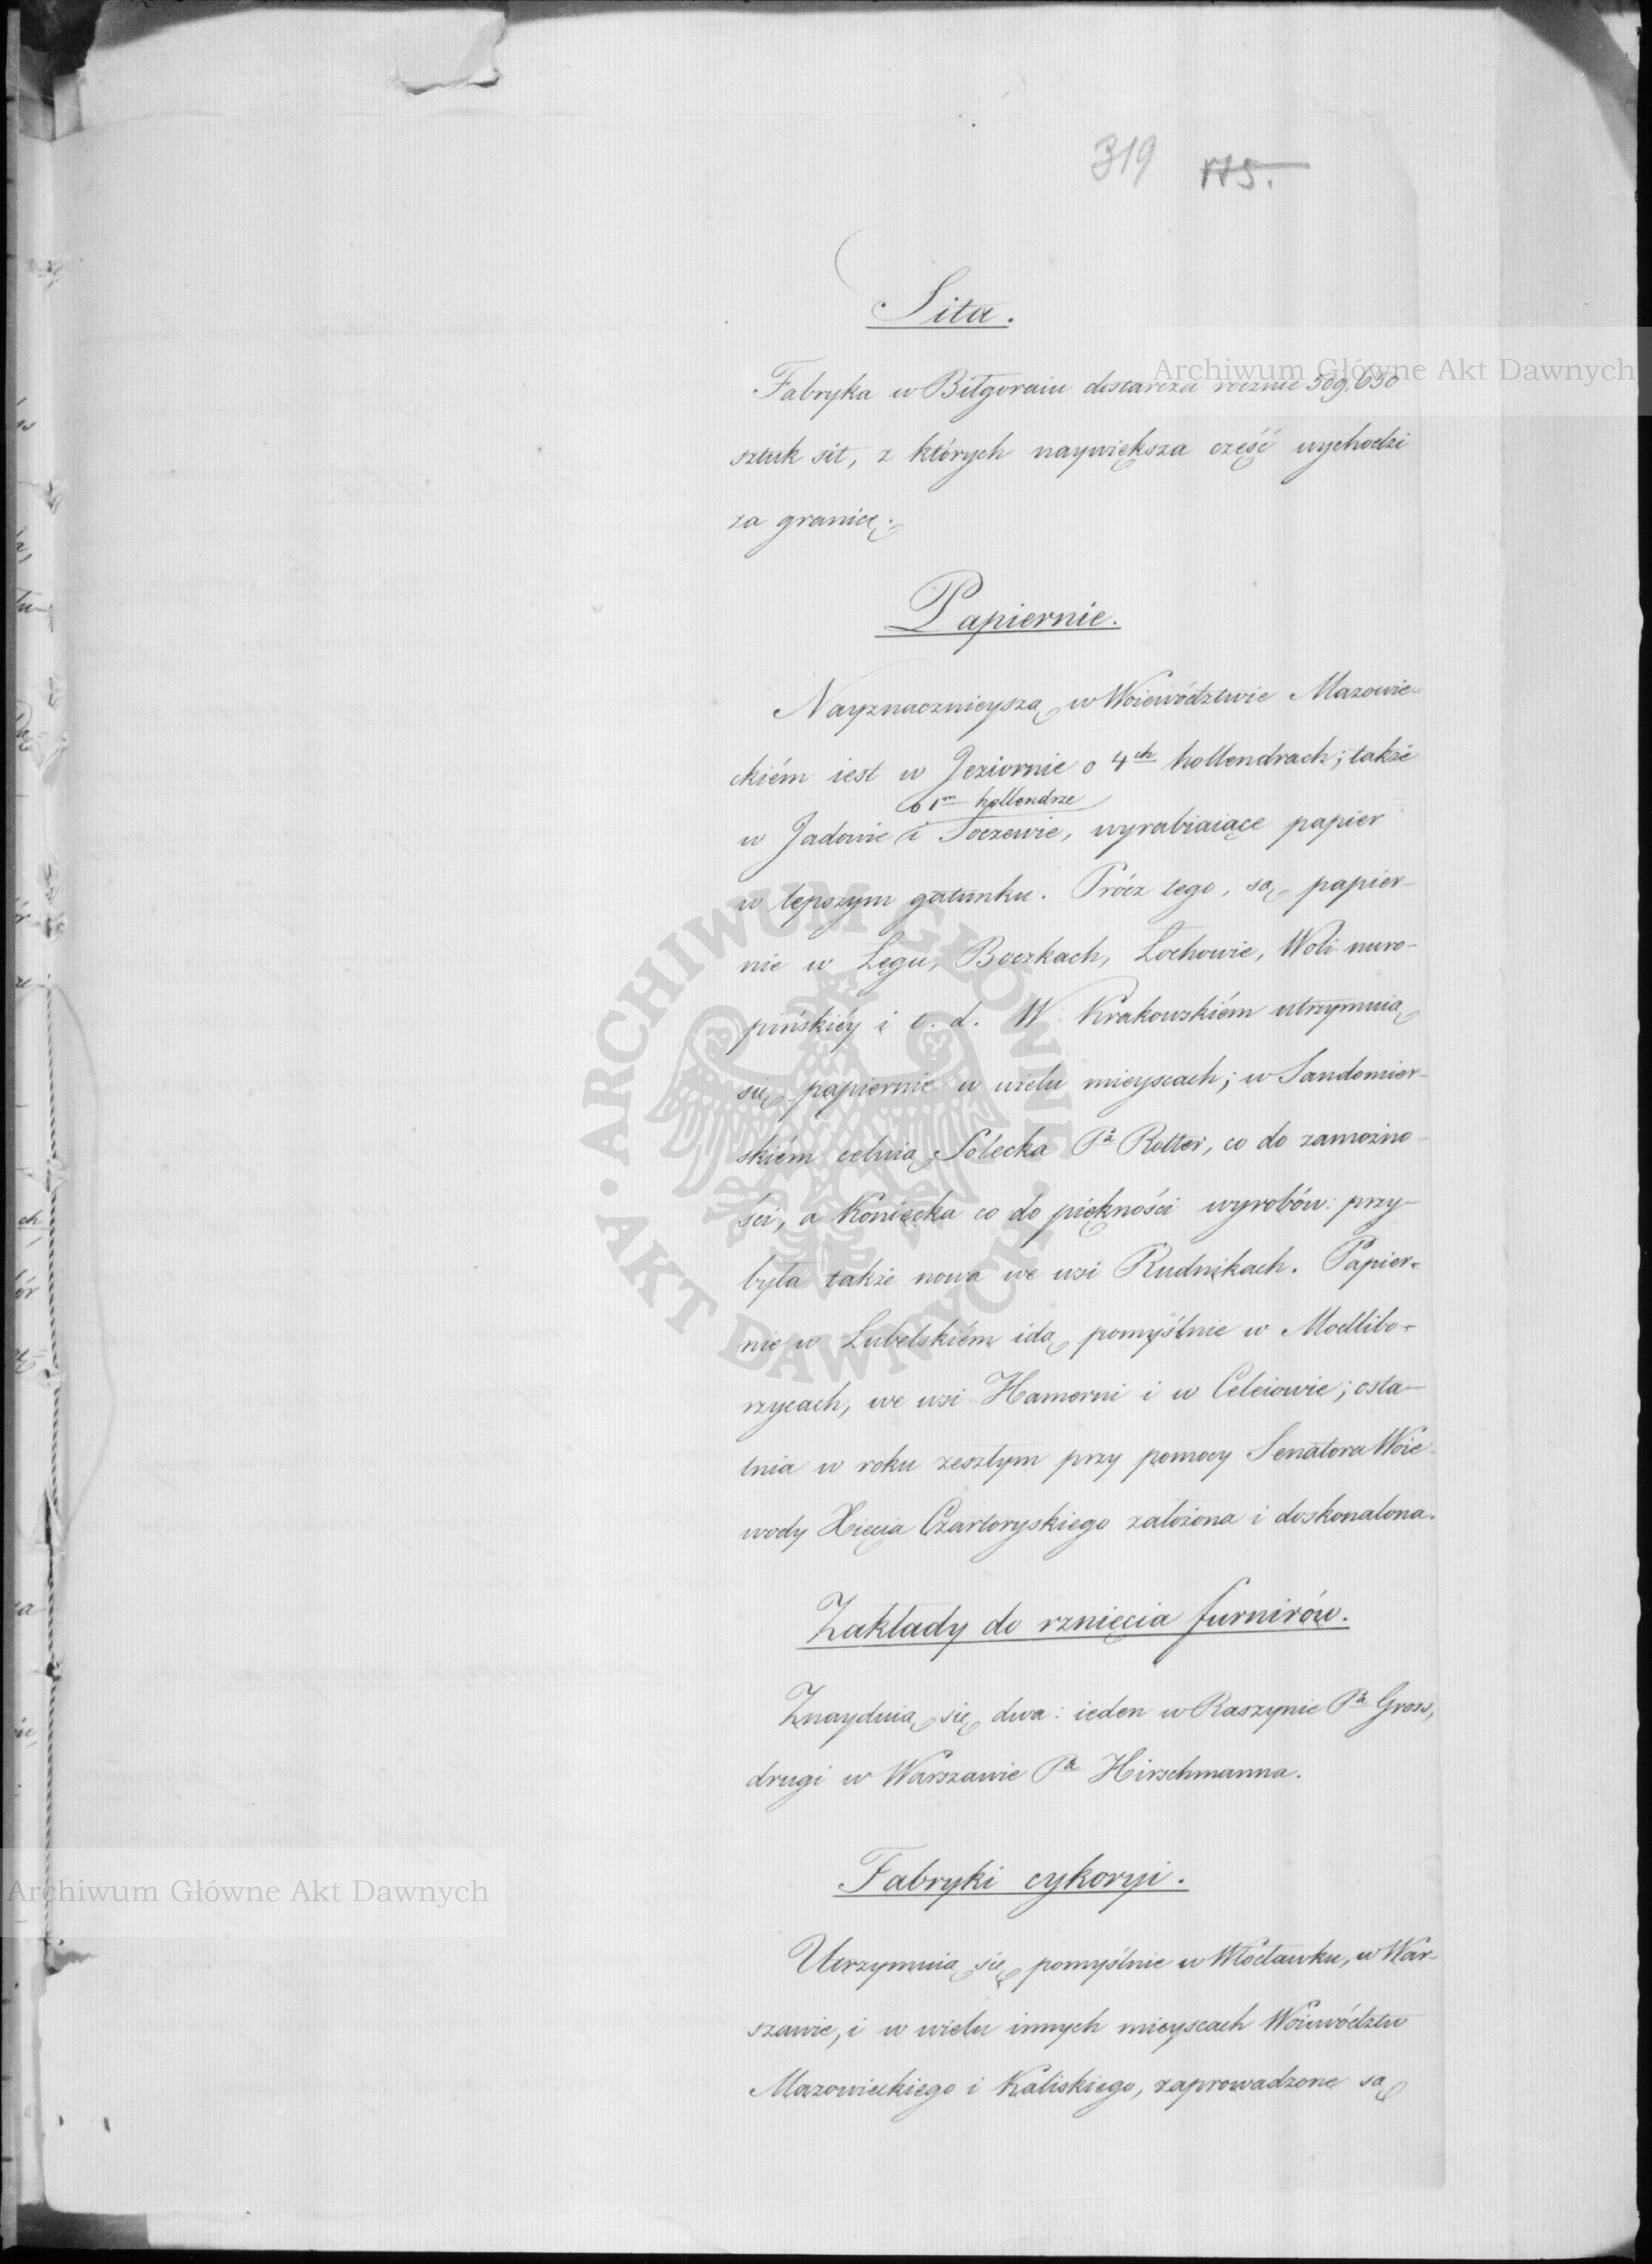 319 115.
Sita.
Fabryka w Biłgoraiu dostarcza rocznie 509,650
sztuk sit, z których naywiększa część wychodzi
za granicę.
Papiernie.
Nayznacznieyszą w Woiewództwie Mazowie-
ckiém iest w Jeziornie o 4ch hollendrach; także
o 1m hollendrze
w Jadowie i Soczewie, wyrabiaiące papier
w lepszym gatunku. Prócz tego, są papier-
nie w Łęgu, Boczkach, Łochowie, Woli muro-
pińskiéy i t. d. W Krakowskiém utrzymuią
się papiernie w wielu mieyscach; w Sandomier-
skiém celuią Solecka Pa Rotter, co do zamożno-
ści, a Koniecka co do piękności wyrobów: przy-
była także nowa we wsi Rudnikach. Papier-
nie w Lubelskiém idą pomyślnie w Modlibo-
rzycach, we wsi Hamerni i w Celeiowie; osta-
tnia w roku zeszłym przy pomocy Senatora Woie-
wody Xięcia Czartoryskiego założona i doskonalona.
Zakłady do rznięcia furnirów.
Znayduią się dwa: ieden w Raszynie Pa Gross,
drugi w Warszawie Pa Hirschmanna.
Fabryki cykoryi.
Utrzymuią się pomyślnie w Włocławku, w War-
szawie, i w wielu innych mieyscach Woiewództw
Mazowieckiego i Kaliskiego, zaprowadzone są
Archiwum Główne Akt Dawnych
Archiwum Główne Akt Dawnych
ARCHIWUM GŁÓWNE AKT DAWNYCH